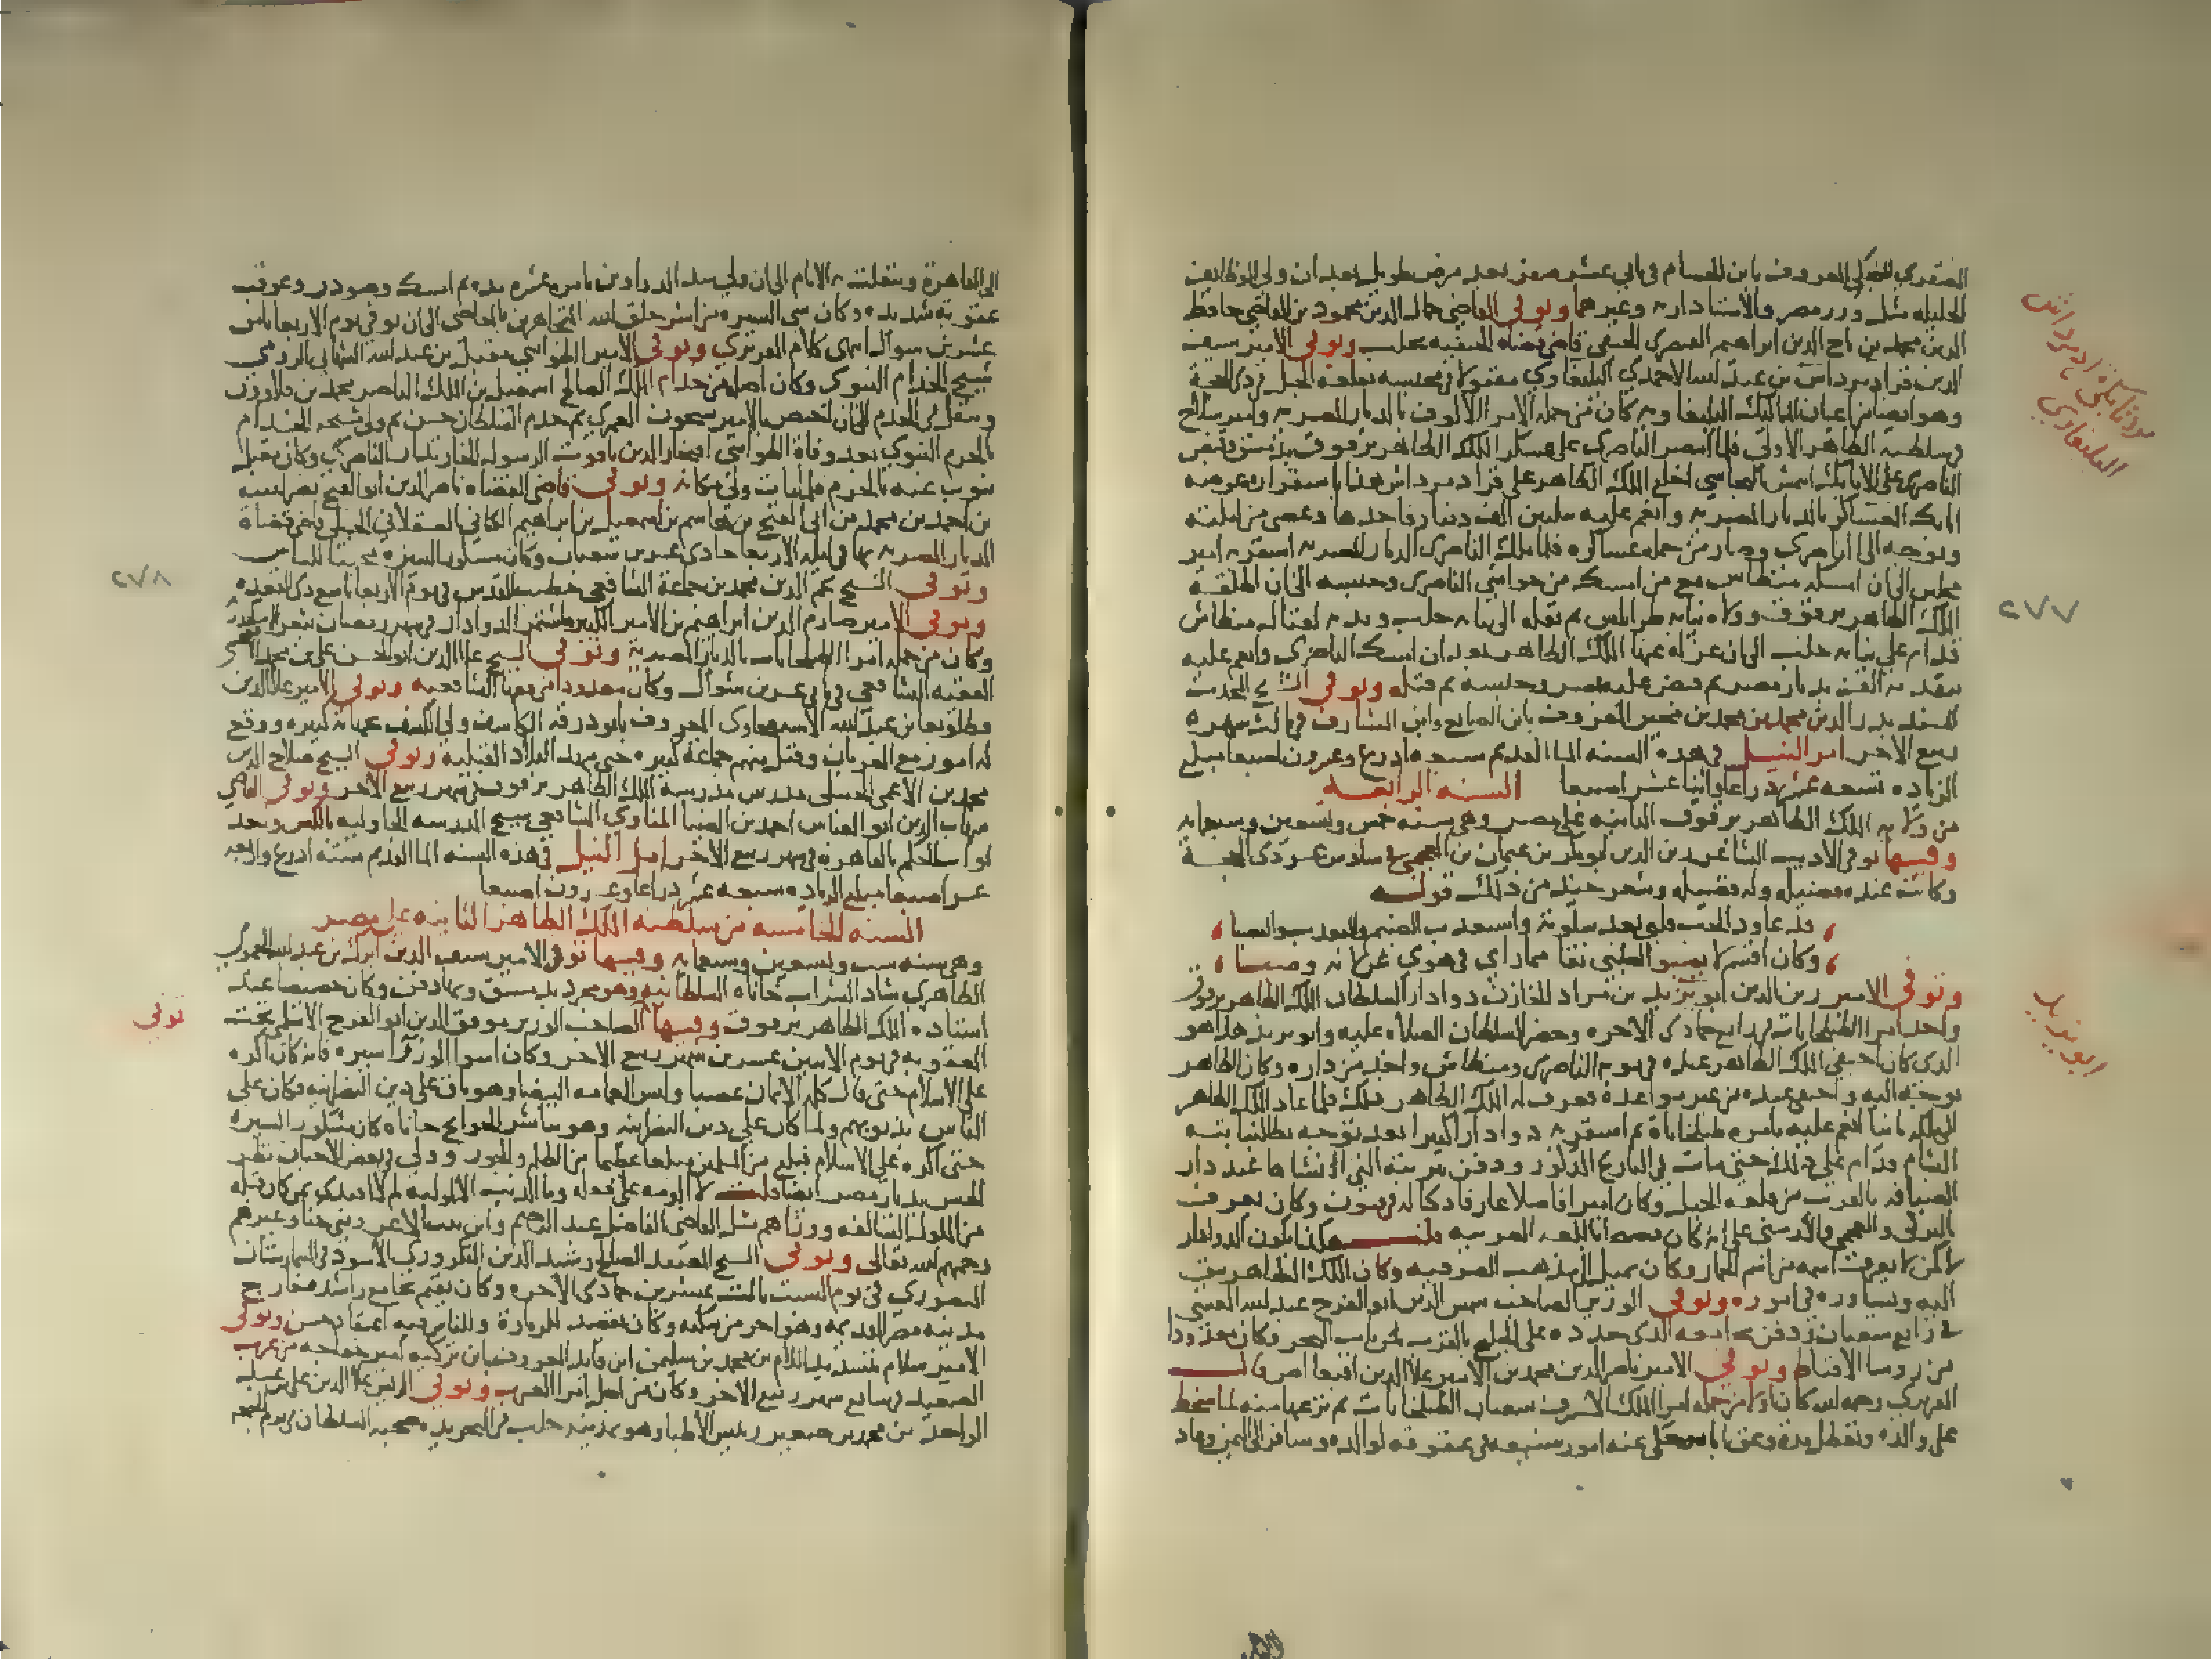 الصقري المنجكي المعروف بابن الحسام في ثاني عشر صفر بعد مرض طويل بعد ان ولي الوظايف
الجليله مثل وزر مصر والاستاداريه وغيرهما وتوفي القاضي جمال الدين محمود بن القاضي حافظ
الدين محمد بن تاج الدين ابراهيم القيصري الحنفي قاضي قضاه الحنفيه بحلب وتوفي الامير سيف
الدين قرادمرداش بن عبد الله الاحمدي اليلبغاوي مقتولا في محبسه بقلعه الجبل في ذي الحجة
وهو ايضا من اعيان المماليك اليلبغاويه كان من جمله الامرا الالوف بالديار المصريه وامير سلاح
في سلطنة الظاهر الاولى فلما انتصر الناصري على عسكر الملك الظاهر برقوق بدمشق وقبض
الناصري على الاتابك ايتمش البجاسي اخلع الملك الظاهر على قرادمرداش هذا باستقراره عوضه
اتابك العساكر بالديار المصريه وانعم عليه بثلثين الف دينار فاخذها وعصى من ليلته
وتوجه الى الناصري وصار من جمله عساكره فلما ملك الناصري الديار المصريه استقر به امير
مجلس الى ان امسكه منطاش مع من امسك من حواشي الناصري وحبسه الى ان اطلقه
الملك الظاهر برقوق وولاه نيابه طرابلس ثم نقله الى نيابه حلب وندبه لقتال منطاش
فدام على نيابه حلب الى ان عزله عنها الملك الظاهر بعد ان امسك الناصري وانعم عليه
بتقدمه الف بديار مصر ثم قبض عليه بمصر وحبسه ثم قتله وتوفي الشيخ المحدث
المسند بدر الدين محمد بن محمد بن مجير المعروف بابن الصايغ وابن المشارف في ثالث شهر
ربيع الاخر امر النيل في هذه السنه الما القديم سبعه اذرع وعشرون اصبعا مبلغ
الزياده تسعه عشر ذراعا واثنا عشر اصبعا السنه الرابعه
من ولايه الملك الظاهر برقوق الثانيه على مصر وهي سنه خمس وتسعين وسبعمايه
وفيها توفي الاديب الشاعر زين الدين ابو بكر بن عثمان بن العجمي في سادس عشر ذي الحجة
وكانت عنده فضيله وله فضيله وشعر جيد من ذلك قوله
قد عاود الحب قلبي بعد سلوته واستعذب الضيم والتعذيب والصبا
وكان اقسم لا يصبو الظبي نقا مما راى في هوى غزلانه وصبا
وتوفي الامير زين الدين ابو يزيد بن مراد الخازن دوادار السلطان الملك الظاهر برقوق
واحد امرا الطبلخانات في رابع جمادى الاخره وحضر السلطان الصلاه عليه وابو يزيد هذا هو
الذي كان اختفى الملك الظاهر عنده في نوبه الناصري ومنطاش واخذ من داره وكان الظاهر
توجه اليه واختفى عنده من غير مواعدة فعرف له الملك الظاهر ذلك فلما عاد الملك الظاهر
الى ملكه ثانيا انعم عليه بامره طبلخاناة ثم استقر به دوادارا كبيرا بعد توجه بطا لنيابته
الشام ودام على ذلك حتى مات في التاريخ المذكور ودفن بتربته التي انشاها عند دار
الضيافه بالقرب من قلعه الجبل وكان اميرا فاضلا عارفا ذكيا له فنون وكان يعرف
التركي والعجمي والارمني على انه كان فصيحا باللغه العربيه قلت هكذا يكون الدوادار
لا كمن لا يعرف اسمه من اسم الحمار وكان يميل الى مذهب الصوفيه وكان الملك الظاهر يثق
اليه ويشاوره في اموره وتوفي الوزير الصاحب شمس الدين ابو الفرج عبد الله المقسي
في رابع شعبان ودفن بجامعه الذي جدده على الخليج بالقرب من باب البحر وكان معدودا
من روسا الاقباط وتوفي الامير ناصر الدين محمد بن الامير علا الدين اقبغا اص قال
المقريزي رحمه الله كان اولا من جمله امرا الملك الاشرف شعبان الطبلخانات ثم نزعها منه لما سخط
على والده وتعطل مده وعق اباه وحكي عنه امور شنيعه في عقوقه لوالده وسافر الى اليمن وعاد
قرادمرداش
اليلبغاوي
٢٧٧
ابو يزيد
الى القاهرة وتنقلت به الايام الى ان ولي شد الدواوين بامره عشره مده ثم امسك وصودر وعوقب
عقوبه شديده وكان سي السيره من اشر خلق الله المتجاهرين بالمعاصي الى ان توفي يوم الاربعا ثامن
عشرين شوال انتهى كلام المقريزي وتوفي الامير الطواشي مقبل بن عبد الله الشهابي الرومي
شيخ الخدام النبوي وكان اصله من خدام الملك الصالح اسمعيل بن الملك الناصر محمد بن قلاوون
وتنقل في الخدم الى ان اختص بالامير شيخون العمري ثم خدم السلطان حسن ثم ولي مشيخه الخدام
بالحرم النبوي بعد وفاة الطواشي افتخار الدين ياقوت الرسولي الخازندار الناصري وكان مقبل
ينوب عنه بالحرم فلما مات ولي مكانه وتوفي قاضي القضاه ناصر الدين ابو الفتح نصر الله
بن احمد بن محمد بن ابي الفتح بن هاشم بن اسمعيل بن ابراهيم الكناني العسقلاني الحنبلي قاضي قضاة
الديار المصريه بها في ليله الاربعا حادي عشرين شعبان وكان مشكور السيره محببا للناس
وتوفي الشيخ نجم الدين محمد بن جماعة الشافعي خطيب القدس في يوم الاربعا تاسع ذي القعده
وتوفي الامير صارم الدين ابراهيم بن الامير الكبير طشتمر الدوادار في شهر رمضان بثغر اسكندريه
وكان من جمله امرا الطبلخانات بالديار المصرية وتوفي الشيخ علا الدين ابو الحسن علي بن محمد
الفقيه الشافعي في ثاني عشرين شوال وكان معدودا من فقها الشافعيه وتوفي الامير علا الدين
قطلوبغا بن عبد الله الاسنبغاوي المعروف بابو درقه الكاشف ولي الكشف غير مره كبيره ووقع
له امور مع العربان وقتل منهم جماعة كبيره حتى مهد البلاد القبليه وتوفي الشيخ صلاح الدين
محمد بن الاعمى الحنبلي مدرس مدرسة الملك الظاهر برقوق في شهر ربيع الاخر وتوفي القاضي
شهاب الدين ابو العباس احمد بن الضيا المناوي الشافعي شيخ المدرسه الجاوليه بالكبش واحد
نواب الحكم بالقاهرة في شهر ربيع الاخر امر النيل في هذه السنه الما القديم سته اذرع واربعه
عشر اصبعا مبلغ الزياده سبعه عشر ذراعا وعشرون اصبعا
السنه الخامسه من سلطنه الملك الظاهر الثانيه على مصر
وهي سنه ست وتسعين وسبعمايه وفيها توفي الامير سيف الدين ابرك بن عبد الله المحمودي
الظاهري شاد الشراب خاناه السلطانيه وهو مجرد بدمشق وبها دفن وكان خصيصا عند
استاذه الملك الظاهر برقوق وفيها الصاحب الوزير موفق الدين ابو الفرج الاسلمي تحت
العقوبه في يوم الاثنين عشرين شهر ربيع الاخر وكان اسوا الوزرا سيره فانه كان اكره
على الاسلام حتى قال كلمه الايمان غصبا ولبس العمامه البيضا وهو باق على دين النصرانيه وكان على
الناس بذنوبهم ولما كان على دين النصرانيه وهو مباشر الحوايج خاناه كان مشكور السيره
حتى اكره على الاسلام فبلغ من المسلمين مبلغا عظيما من الظلم والجور وولي في بعض الاحيان نظر
الجيش بديار مصر ايضا قلت لا الومه على فعله وما الذنب الا لموليه
من الملوك السالفه ووزراهم مثل القاضي الفاضل عبد الرحيم وابن بنت الاعز وبني حنا وغيرهم
رحمهم الله تعالى وتوفي الشيخ المعتقد الصالح رشيد الدين التكروري الاسود في البيمارستان
المنصوري في يوم السبت ثالث عشرين جمادى الاخره وكان يقيم بجامع راشده خارج
مدينه مصر القديمه وهو اخر من سكنه وكان يقصد للزيارة وللناس فيه اعتقاد حسن وتوفي
الامير سلام بتشديد اللام بن محمد بن سليمن ابن فايد المعروف بابن تركيه امير خفاجه من عرب
الصعيد في سابع شهر ربيع الاخر وكان من اجل امرا العرب وتوفي الريس علا الدين علي بن عبد
الواحد بن محمد بن صغير رييس الاطبا وهو بمدينه حلب في التجريده صحبه السلطان في يوم الجمعه
٢٧٨
توفي